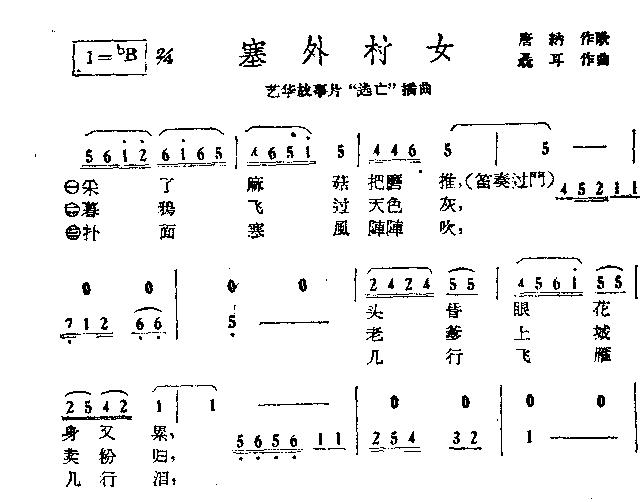 1=ᵇB 2/4
塞外村女
唐纳 作歌
聂耳 作曲
艺华故事片“逃亡”插曲
5 6 1 2 6 1 6 5 4 4 5 1 5 4 4 6 5 5 —
㊀采了蘑菇把磨推,(笛奏过門) 4 5 2 1 1
㊁暮鸦飞过天色灰,
㊂扑面塞風陣陣吹,
0 0 0 0 2 4 2 4 5 5 4 5 6 1 5 5
7 1 2 6 6 5 —
头昏眼花
老爹上城
几行飞雁
2 5 4 2 1 1 — 0 0 0 0
身又累,
5 6 5 6 1 1 2 5 4 3 2 1 —
卖粉归,
几行泪,